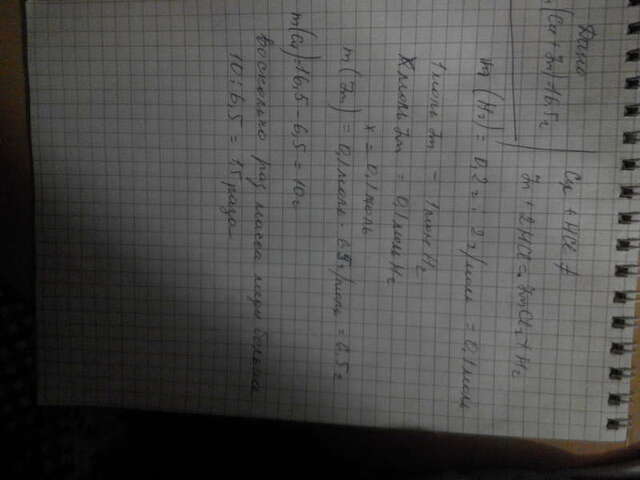 Дано
(Cu + Zn) 16,5г
Cu + HCl ≠
Zn + 2HCl = ZnCl₂ + H₂
m (H₂) = 0,2 г : 2г/моль = 0,1 моль
1 моль Zn — 1 моль H₂
X моль Zn = 0,1 моль H₂
x = 0,1 моль
m (Zn) = 0,1 моль · 65 г/моль = 6,5 г
m(Cu) = 16,5 - 6,5 = 10г
во сколько раз масса меди больше
10 : 6,5 = 1,5 раза